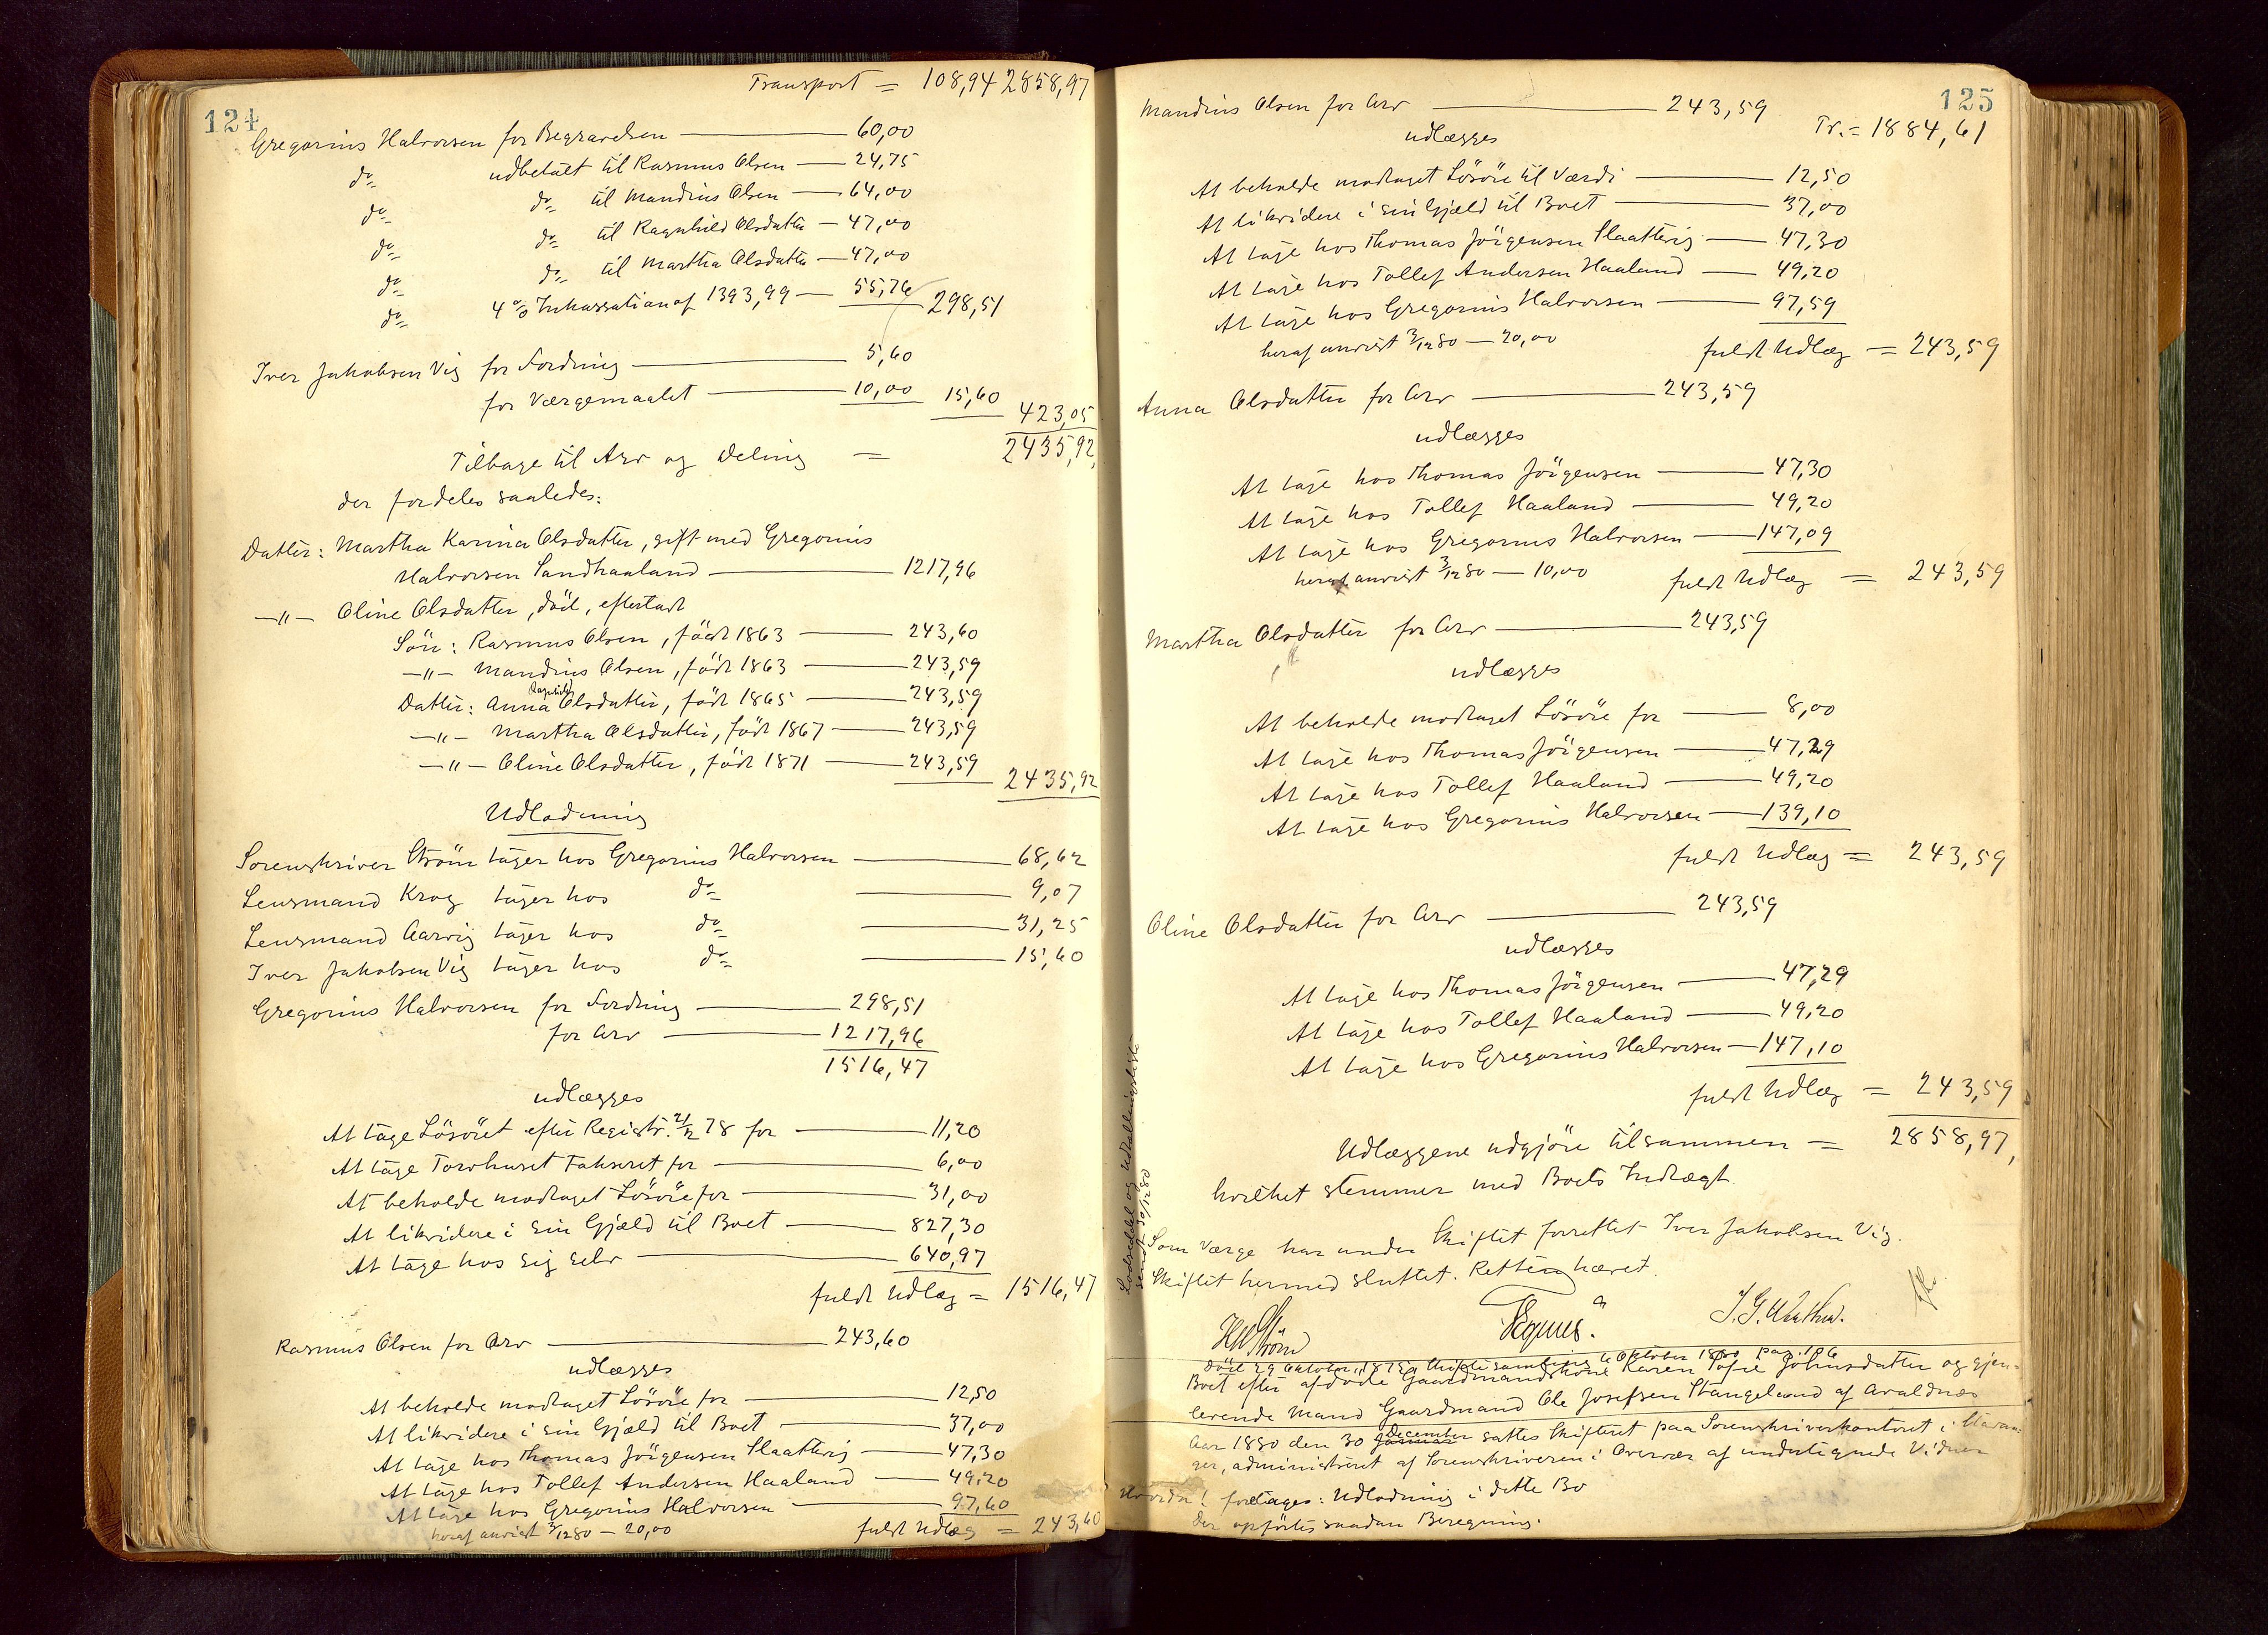 124
Transport = 108,94 2858,97
Gregorius Halvorsen for Begravelsen — 60,00
do= udbetalt til Rasmus Olsen — 24,75
do= do= til Mandius Olsen — 64,00
do= do= til Ragnhild Olsdatter — 47,00
do= do= til Martha Olsdatter — 47,00
do= 4% Inkassation af 1393,99 — 55,76 298,51
Iver Jakobsen Vig for Fordring — 5,60
for Værgemaalet — 10,00 15,60
423,05
Tilbage til Arv og Deling = 2435,92,
der fordeles saaledes:
Datter: Martha Karina Olsdatter, gift med Gregorius
Halvorsen Sandhaaland — 1217,96
—"— Oline Olsdatter, död, efterladt
Sön: Rasmus Olsen, födt 1863 — 243,60
—"— Mandius Olsen, födt 1863 — 243,59
Ragnhild
Datter: Anna Olsdatter, födt 1865 — 243,59
—"— Martha Olsdatter, födt 1867 — 243,59
—"— Oline Olsdatter, födt 1871 — 243,59
2435,92
Udlodning
Sorenskriver Ström tager hos Gregorius Halvorsen — 68,62
Lensmand Krog tager hos do= — 9,07
Lensmand Aarvig tager hos do= — 31,25
Iver Jakobsen Vig tager hos do= — 15,60
Gregorius Halvorsen for Fordring — 298,51
for Arv — 1217,96
1516,47
udlægges
At tage Lösöret efter Registr. 21/2 78 for — 11,20
At tage Torvhuset Takseret for — 6,00
At beholde modtaget Lösöre for — 31,00
At likvidere i sin Gjæld til Boet — 827,30
At tage hos sig selv — 640,97
fuldt Udlæg = 1516,47
Rasmus Olsen for Arv — 243,60
udlægges
At beholde modtaget Lösöre for — 12,50
At likvidere i sin Gjæld til Boet — 37,00
At tage hos Thomas Jörgensen Slaattevig — 47,30
At tage hos Tollef Andersen Haaland — 49,20
At tage hos Gregorius Halvorsen — 97,60
heraf anvist 3/12 80 — 20,00 fuldt Udlæg = 243,60
125
Mandius Olsen for Arv — 243,59
Tr. = 1884,61
udlægges
At beholde modtaget Lösöre til Værdi — 12,50
At likvidere i sin Gjæld til Boet — 37,00
At tage hos Thomas Jörgensen Slaattevig — 47,30
At tage hos Tollef Andersen Haaland — 49,20
At tage hos Gregorius Halvorsen — 97,59
heraf anvist 3/12 80 — 20,00 fuldt Udlæg = 243,59
Anna Olsdatter for Arv — 243,59
udlægges
At tage hos Thomas Jörgensen — 47,30
At tage hos Tollef Haaland — 49,20
At tage hos Gregorius Halvorsen — 147,09
heraf anvist 3/12 80 — 10,00 fuldt Udlæg = 243,59
Martha Olsdatter for Arv — 243,59
udlægges
At beholde modtaget Lösöre for — 8,00
At tage hos Thomas Jörgensen — 47,29
At tage hos Tollef Haaland — 49,20
At tage hos Gregorius Halvorsen — 139,10
fuldt Udlæg = 243,59
Oline Olsdatter for Arv — 243,59
udlægges
At tage hos Thomas Jörgensen — 47,29
At tage hos Tollef Haaland — 49,20
At tage hos Gregorius Halvorsen — 147,10
fuldt Udlæg = 243,59
Udlæggene udgjöre tilsammen = 2858,97,
hvilket stemmer med Boets Indtægt.
Lodseddel og Udtællingsliste
sendt 30/12 80
Som Værge har under Skiftet forrettet Iver Jakobsen Vig.
Skiftet hermed sluttet. Retten hævet.
HW Ström
död 29 Oktober 1875, Skiftesamling 6 Oktober 1880 pag. 106
Boet efter afdöde Gaardmandskone Karen Tofie Johnsdatter og gjen=
levende Mand Gaardmand Ole Josefsen Stangeland af Avaldnæs
Aar 1880 den 30 Januar December sattes Skifteret paa Sorenskriverkontoret i Stavan=
ger, administreret af Sorenskriveren i Overvær af undertegnede Vidner
Hvorda! foretages: Udlodning i dette Bo
Der opförtes saadan Beregning.